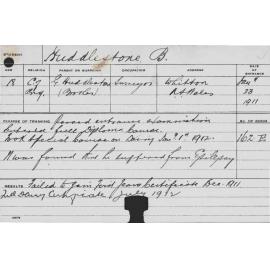 STUDENT Huddlestone B.
AGE RELIGION PARENT OR GUARDIAN OCCUPATION ADDRESS DATE
18 C of Eng. G Huddlestone (Brother) Surveyor Whitton Jan 23 1911
COURSE OF TRAINING Passed entrance examination
Entered full Diploma Course
Took Special Course in Dairy Jan 1st 1912. 162 E
It was found that he suffered from Epilepsy
RESULTS Failed to gain First Years Certificate Dec. 1911
Dairy Certificate July 1912